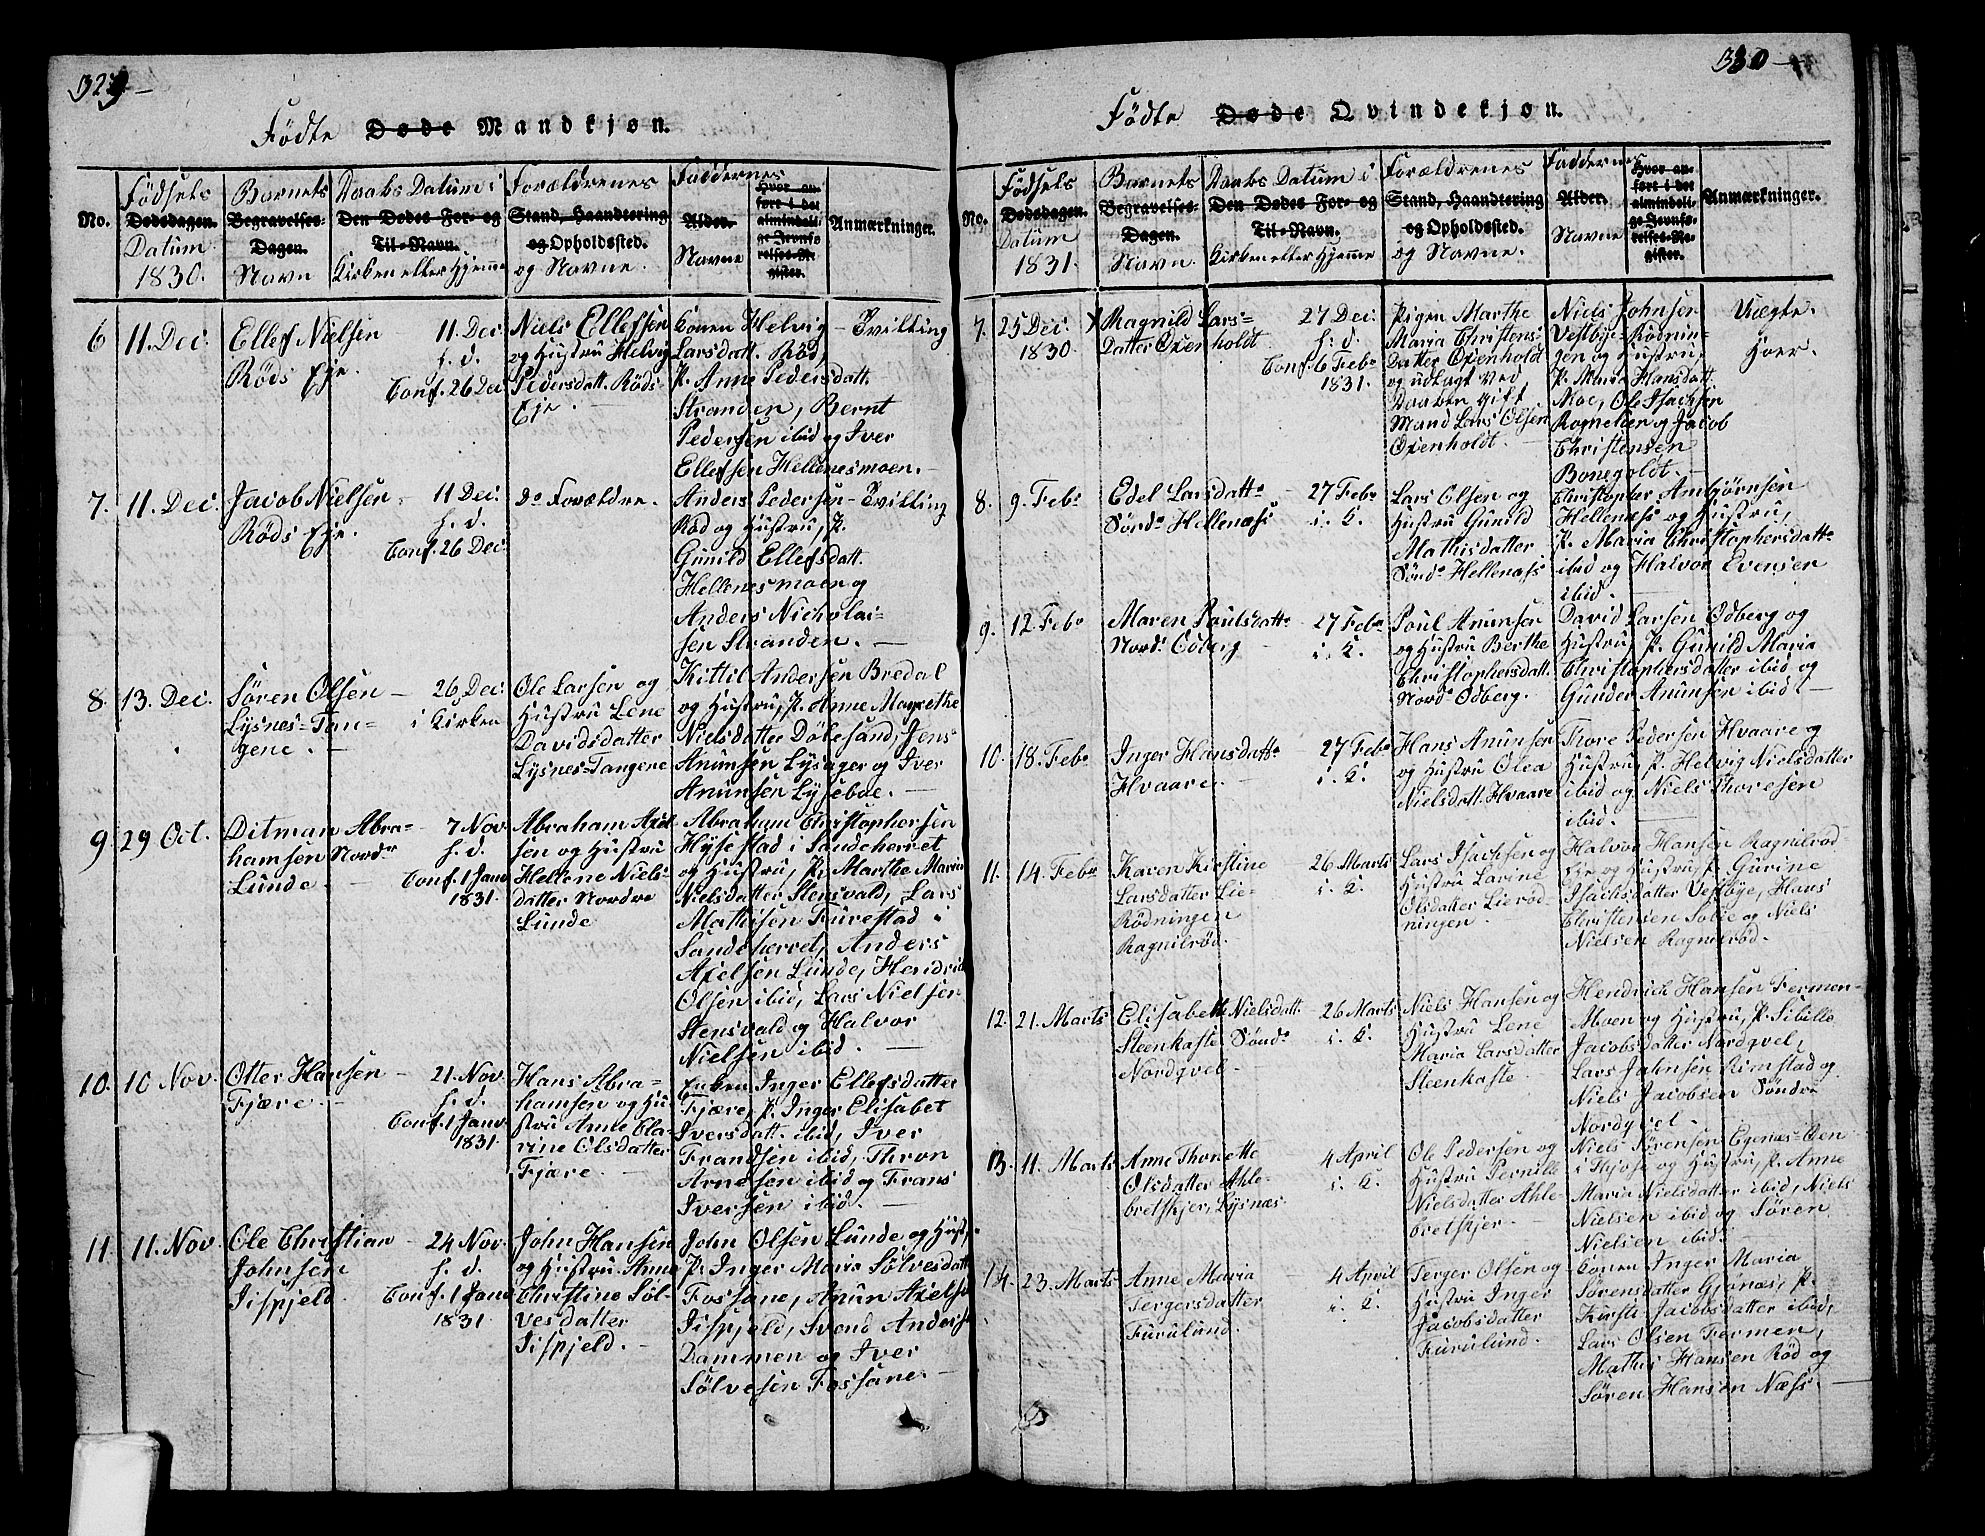 329
Fødte Døde Mandkjøn.
No.
Fødsels
Dødsdagen.
Datum
1830.
Barnets
Begravelses-
Dagen.
Navn
Daabs Datum i
Den Dødes For- og
Til-Navn.
Kirken eller Hjemme
Forældrenes
Stand, Haandtering
og Opholdssted.
og Navne.
Faddernes
Alder.
Navne
Hvor an-
ført i det
almindeli-
ge Jevnfø-
relses-Re-
gister.
Anmærkninger.
6 11. Dec.
Ellef Nielsen
Røds Eje.
11. Dec.
h. d.
Conf. 26 Dec
Niels Ellefsen
og Hustru Helvig
Pedersdatt. Røds
Eje.
Conen Helvig
Larsdatt. Rød,
P. Anne Pedersdatt.
Stranden, Bernt
Pedersen ibid og Iver
Ellefsen Hellenesmoen.
Tvilling
7. 11. Dec.
Jacob Nielsen
Røds Eje.
11 Dec.
h. d.
Conf. 26 Dec.
Do Forældre.
Anders Pedersen
Rød og Hustru, P.
Gunild Ellefsdatt.
Hellenesmoen og
Anders Nicholai-
sen Stranden.
Tvilling
8. 13. Dec.
Søren Olsen
Lysnes-Tan-
gene.
26 Dec.
i Kirken
Ole Larsen og
Hustru Lene
Davidsdatter
Lysnes-Tangene
Kittil Andersen Bredal
og Hustru, P. Anne Magrethe
Nielsdatter Dølesund, Jens
Anunsen Lysager og Iver
Anunsen Lyseboe.
9. 29 Oct.
Ditman Abra-
hamsen Nordr
Lunde.
7 Nov.
h. d.
Conf. 1 Janv
1831.
Abraham Axel-
sen og Hustru
Hellene Niels-
datter Nordre
Lunde
Abraham Christophersen
Hysestad i Sandeherret
og Hustru, P. Marthe Maria
Nielsdatter Stensvald, Lars
Mathisen Furestad i
Sandeherret, Anders
Axelsen Lunde, Hendrik
Olsen ibid, Lars Nielsen
Stensvald og Halvor
Nielsen ibid.
10. 10 Nov.
Otter Hansen
Fjære.
21. Nov.
h. d.
Conf. 1 Janv.
1831.
Hans Abra-
hamsen og Hu-
stru Anne Cla-
rine Olsdatter
Fjære.
Enken Inger Ellefsdatter
Fjære, P. Inger Elisabet
Iversdatt. ibid, Iver
Frandsen ibid, Thron
Arnesen ibid og Frans
Iversen ibid.
11. 11. Nov.
Ole Christian
Johnsen
Jispjeld.
24 Nov.
h. d.
Conf. 1 Janv
1831.
John Hansen
og Hustru Anne
Christine Søl-
vesdatter
Jispjeld.
John Olsen Lunde og Hust.
P. Inger Maria Sølvesdatt
Fossane, Anun Axelsen
Jispjeld, Svend Anders
Dammen og Iver
Sølvesen Fossane.
330
Fødte Døde Qvindekjøn.
No.
Fødsels
Dødsdagen.
Datum
1831.
Barnets
Begravelses-
Dagen.
Navn.
Daabs Datum i
Den Dødes For- og
Til-Navn.
Kirken eller Hjemme
Forældrenes
Stand, Haandtering
og Opholdssted.
og Navne.
Faddernes
Alder.
Navne
Hvor an-
ført i det
almindeli-
ge Jevnfø-
relses-Re-
gister.
Anmærkninger.
7. 25 Dec.
1830.
Ragnild Lars-
Datter Oxenholdt
27 Dec.
h. d.
Conf. 6 Febr
1831.
Pigen Marthe
Maria Christens-
Datter Oxenholdt
og udlagt ved
Daaben gift
Mand Lars Olsen
Oxenholdt.
Niels Johnsen
Vestbye-Rødnin-
gen og Hustru,
P. Maria Hansdatt.
Moe, Ole Isachsen
Rognelien og Jacob
Christensen
Bonegoldt.
Uægte.
Hoer.
8. 9. Febr
Edel Larsdattr
Søndr Hellenæss
27 Febr
i. K.
Lars Olsen og
Hustru Gunild
Mathisdatter
Søndr Hellenæss
Christopher Ambjørnsen
Hellenæss og Hustru,
P. Maria Christophersdattr
ibid og Halvor Evensen
ibid.
9. 12 Febr
Maren Poulsdattr
Nordr Odberg
27 Febr
i. K.
Poul Anunsen
og Hustru Berthe
Christophersdatt.
Nordr Odberg.
David Larsen Odberg og
Hustru, P. Gunild Maria
Christophersdatter ibid og
Gunder Anunsen ibid.
10. 18. Febr
Inger Hansdattr
Hvaare.
27 Febr
i. K.
Hans Anunsen
og Hustru Olea
Nielsdatt. Hvaare
Thore Pedersen Hvaare og
Hustru, P. Helvig Nielsdatter
ibid og Niels Thoresen
ibid.
11. 14. Febr
Karen Kirstine
Larsdatter Lie-
Rødningen
Ragnilrød.
26 Marts
i. K.
Lars Isachsen og
Hustru Larine
Olsdatter Lierød-
ningen.
Halvor Hansen Ragnilrød
Eje og Hustru, P. Gurine
Isachsdatter Vestbye, Hans
Christensen Solie og Niels
Nielsen Ragnilrød.
12. 21. Marts
Elisabeth Nielsdatt.
Steenkaste Søndr
Nordqvel.
26 Marts
i. K.
Niels Hansen og
Hustru Lene
Maria Larsdatter
Steenkaste.
Hendrich Hansen Fermen-
Moen og Hustru, P. Sibille
Jacobsdatter Nordqvel,
Lars Johnsen Rimstad og
Niels Jacobsen Søndre
Nordqvel.
13. 11. Marts
Anne Thonette
Olsdatter Ahle-
bretskjer, Lysnæs
4 April
i. K.
Ole Pedersen og
Hustru Pernille
Nielsdatter Ahle-
bretskjer.
Niels Sørensen Egenæs-Oen
i Hjose og Hustru, P. Anne
Maria Nielsdatter ibid, Niels
Nielsen ibid og Søren
Nielsen ibid.
14. 23. Marts
Anne Maria
Tergersdatter
Furulund.
4 April
i. K.
Terger Olsen og
Hustru Inger
Jacobsdatter
Furulund.
Conen Inger Maria
Sørensdatter Gjønæs, P.
Kirsti Jacobsdatter ibid,
Lars Olsen Fermen,
Mathis Hansen Rød og
Søren Hansen Næss.